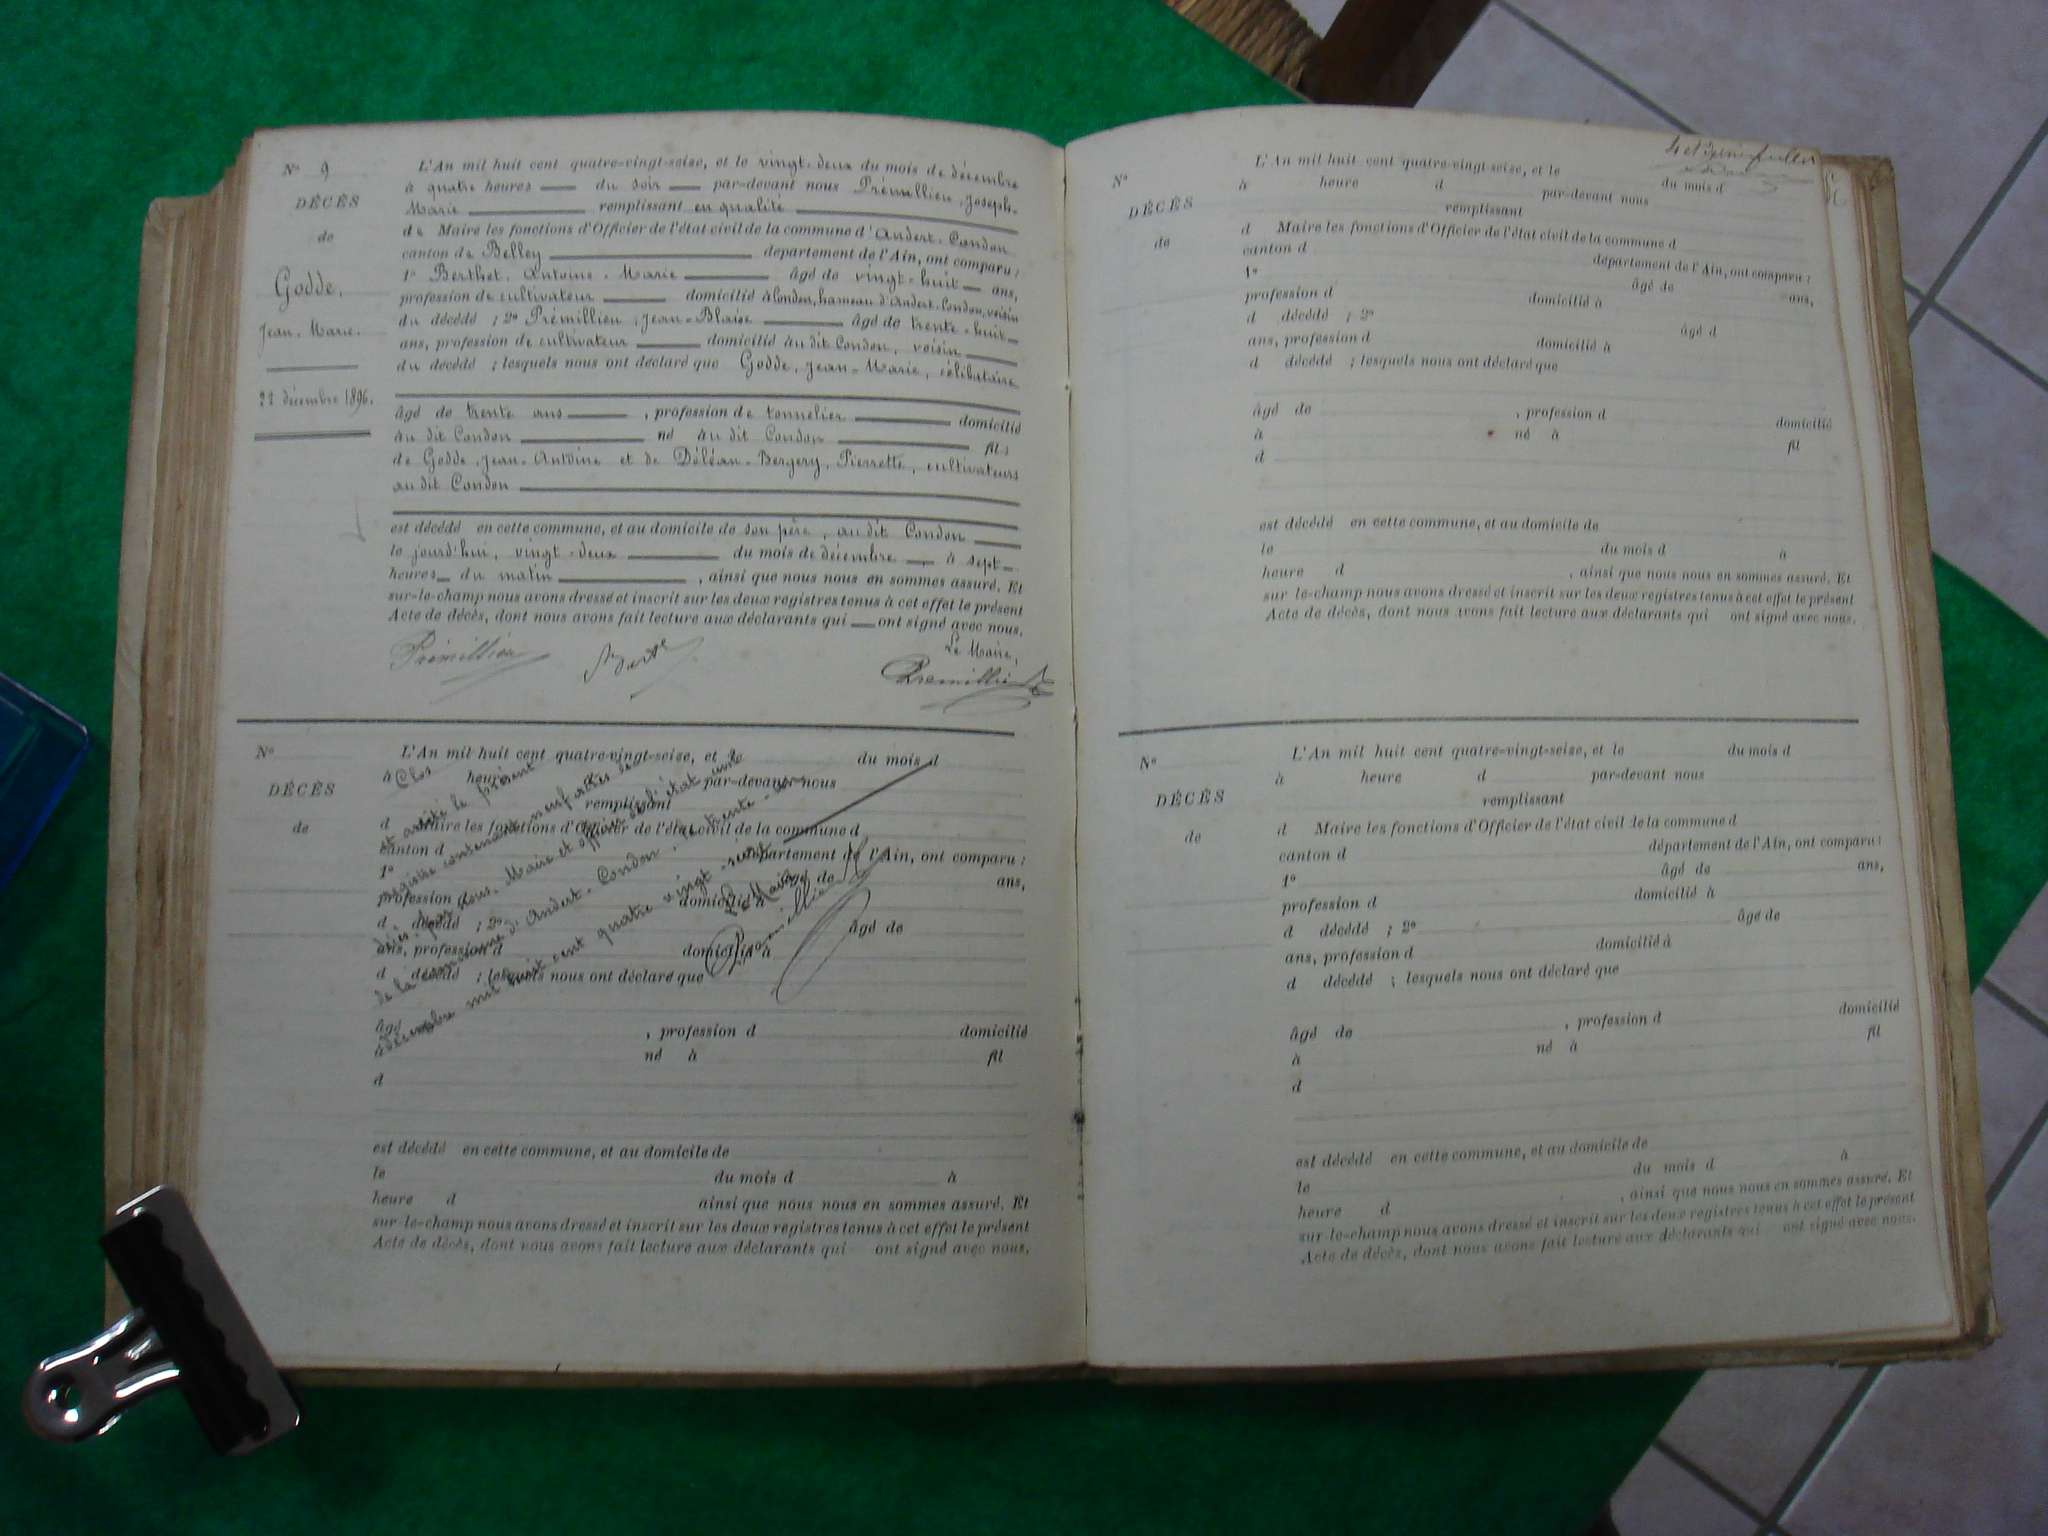 N° 9
DÉCÈS
de
Godde,
Jean-Marie.
22 décembre 1896.
L'An mil huit cent quatre-vingt-seize, et le vingt-deux du mois de décembre
à quatre heures du soir par-devant nous Prémillieu, Joseph-
Marie remplissant en qualité
de Maire les fonctions d'Officier de l'état civil de la commune d'Andert-Condon
canton de Belley département de l'Ain, ont comparu :
1° Berthet, Antoine-Marie âgé de vingt-huit ans,
profession de cultivateur domicilié à Condon, hameau d'Andert-Condon, voisin
du décédé ; 2° Prémillieu, Jean-Blaise âgé de trente-huit
ans, profession de cultivateur domicilié au dit Condon, voisin
du décédé ; lesquels nous ont déclaré que Godde, Jean-Marie, célibataire
âgé de trente ans , profession de tonnelier domicilié
au dit Condon né au dit Condon fils
de Godde, Jean-Antoine et de Déléan-Bergery, Pierrette, cultivateurs
au dit Condon
est décédé en cette commune, et au domicile de son père, au dit Condon
le jourd'hui, vingt-deux du mois de décembre à sept
heures du matin , ainsi que nous nous en sommes assuré. Et
sur-le-champ nous avons dressé et inscrit sur les deux registres tenus à cet effet le présent
Acte de décès, dont nous avons fait lecture aux déclarants qui ont signé avec nous.
Le Maire,
Prémillieu
Premillieu
N°
DÉCÈS
de
L'An mil huit cent quatre-vingt-seize, et le du mois d
à heure par-devant nous
remplissant
d Maire les fonctions d'Officier de l'état civil de la commune d
canton d département de l'Ain, ont comparu :
1° âgé de ans,
profession d domicilié à
d décédé ; 2° âgé de
ans, profession d domicilié à
d décédé ; lesquels nous ont déclaré que
âgé , profession d domicilié
à né à fil
d
est décédé en cette commune, et au domicile de
le du mois d à
heure d ainsi que nous nous en sommes assuré. Et
sur-le-champ nous avons dressé et inscrit sur les deux registres tenus à cet effet le présent
Acte de décès, dont nous avons fait lecture aux déclarants qui ont signé avec nous.
Clos
et arrêté le présent
registre contenant neuf actes de
décès, par nous, Maire et officier de l'état civil
de la commune d'Andert-Condon, le trente-un
décembre mil huit cent quatre vingt-seize
Le Maire
Premillieu
N°
DÉCÈS
de
L'An mil huit cent quatre-vingt-seize, et le du mois d
à heure d par-devant nous
remplissant
d Maire les fonctions d'Officier de l'état civil de la commune d
canton d département de l'Ain, ont comparu :
1° âgé de ans,
profession d domicilié à
d décédé ; 2° âgé d
ans, profession d domicilié à
d décédé ; lesquels nous ont déclaré que
âgé de , profession d domicilié
à né à fil
d
est décédé en cette commune, et au domicile de
le du mois d à
heure d , ainsi que nous nous en sommes assuré. Et
sur-le-champ nous avons dressé et inscrit sur les deux registres tenus à cet effet le présent
Acte de décès, dont nous avons fait lecture aux déclarants qui ont signé avec nous.
N°
DÉCÈS
de
L'An mil huit cent quatre-vingt-seize, et le du mois d
à heure d par-devant nous
remplissant
d Maire les fonctions d'Officier de l'état civil de la commune d
canton d département de l'Ain, ont comparu :
1° âgé de ans,
profession d domicilié à
d décédé ; 2° âgé de
ans, profession d domicilié à
d décédé ; lesquels nous ont déclaré que
âgé de , profession d domicilié
à né à fil
d
est décédé en cette commune, et au domicile de
le du mois d à
heure d , ainsi que nous nous en sommes assuré. Et
sur-le-champ nous avons dressé et inscrit sur les deux registres tenus à cet effet le présent
Acte de décès, dont nous avons fait lecture aux déclarants qui ont signé avec nous.